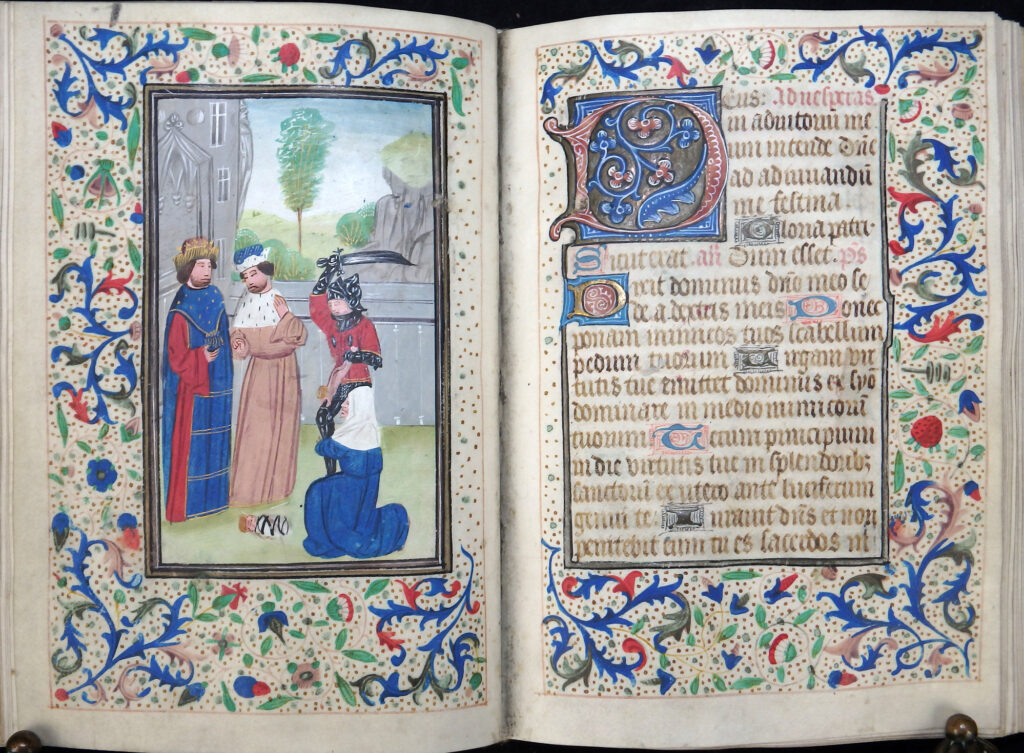 Deus: Ad vesperas
in adiutoriu me
um intende Dne
ad adiuvandu
me festina
Gloria patri
Sicut erat. an Dum esset. ps
Dixit dominus dno meo se
de a dextris meis Donec
ponam inimicos tuos scabellum
pedum tuorum Virgam vir
tutis tue emittet dominus ex syo
dominare in medio inimicoru
tuorum Tecum principium
in die virtutis tue in splendorib;
sanctoru ex utero ante luciferum
genui te Iuravit dns et non
penitebit eum tu es sacerdos in